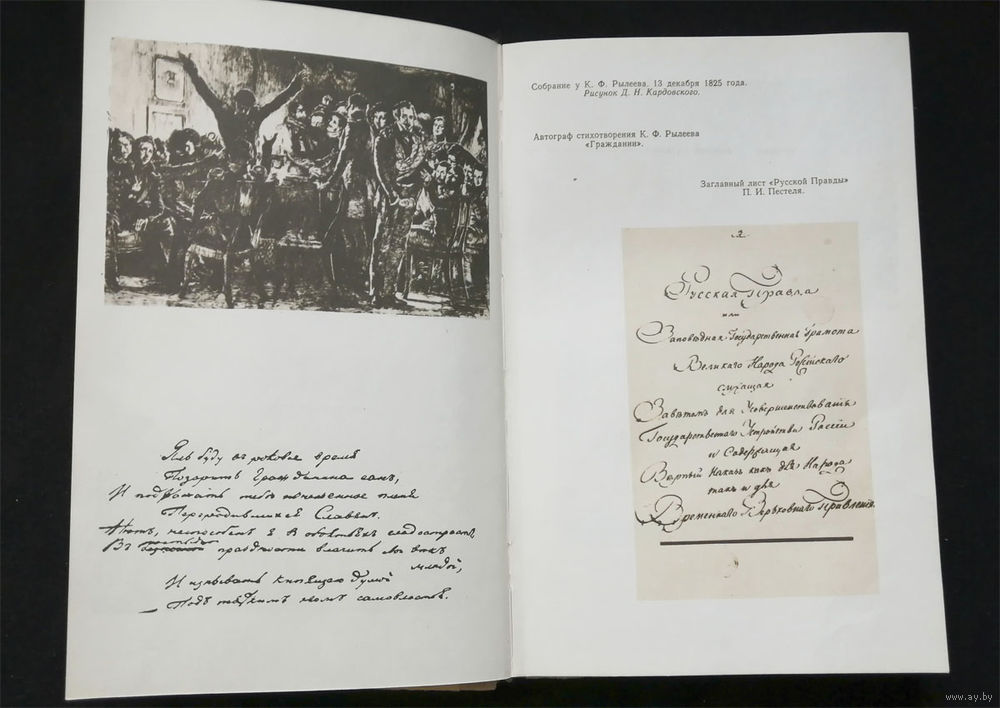 Яль буду въ роковое время
Позорить Гражданина санъ,
И подражать тебѣ изнѣженное племя
Переродившихся Славянъ.
Нѣтъ, неспособенъ я въ объятьяхъ сладострастья,
Въ постыдной праздности влачить свой вѣкъ
младой,
И изнывать кипящею душой
Подъ тяжкимъ игомъ самовластья.
Собрание у К. Ф. Рылеева. 13 декабря 1825 года.
Рисунок Д. Н. Кардовского.
Автограф стихотворения К. Ф. Рылеева
«Гражданин».
Заглавный лист «Русской Правды»
П. И. Пестеля.
2
Русская Правда
или
Заповѣдная Государственная Грамота
Великаго Народа Россійскаго
служащая
Завѣтомъ для Усовершенствованія
Государственнаго Устройства Россіи
и Содержащая
Вѣрный Наказъ какъ для Народа
такъ и для
Временнаго Верьховнаго Правленія.
www.ay.by